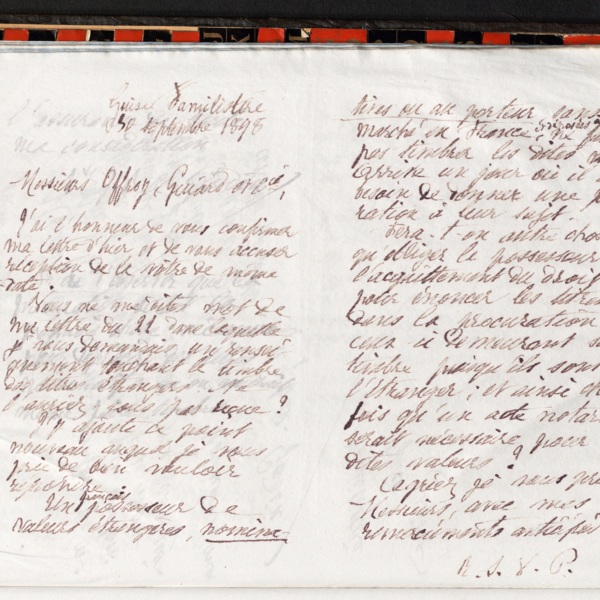 Guise Familistère
30 septembre 1898
Messieurs Offroy, Guiard et Cie,
J'ai l'honneur de vous confirmer
ma lettre d'hier et de vous accuser
réception de la vôtre de même
date.
Vous ne me dites mot de
ma lettre du 22 dans laquelle
je vous demandais un rensei
gnement touchant le timbre
des titres étrangers
L'auriez-vous pas reçue ?
J'y ajoute ce point
nouveau auquel je vous
prie de bien vouloir
répondre
Un français possesseur de
valeurs étrangères, nomina
tives ou au porteur sans
marché en France
pas timbrer les dites
arrive un jour où il
besoin de donner une
ration à leur sujet.
Fera-t-on autre cho
qu'obliger le possesseur
l'acquittement du droit
pour énoncer les titres
dans la procuration
ceux-ci demeurant
timbre puisqu'ils sont
l'étranger ; et ainsi
fois qu'un acte notar
serait nécessaire pour
dites valeurs ?
Agréez je vous pri
Messieurs, avec mes
remerciements anticipés
R. S. V. P.